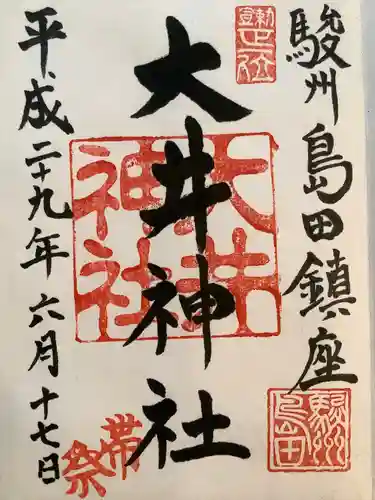 駿州島田鎮座
勅宣正一位
大井神社
大井神社
駿州島田
帯祭
平成二十九年六月十七日